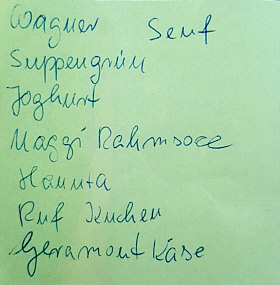 Wagner Senf
Suppengrün
Joghurt
Maggi Rahmsoce
Hanuta
Ruf Kuchen
Geramont Käse